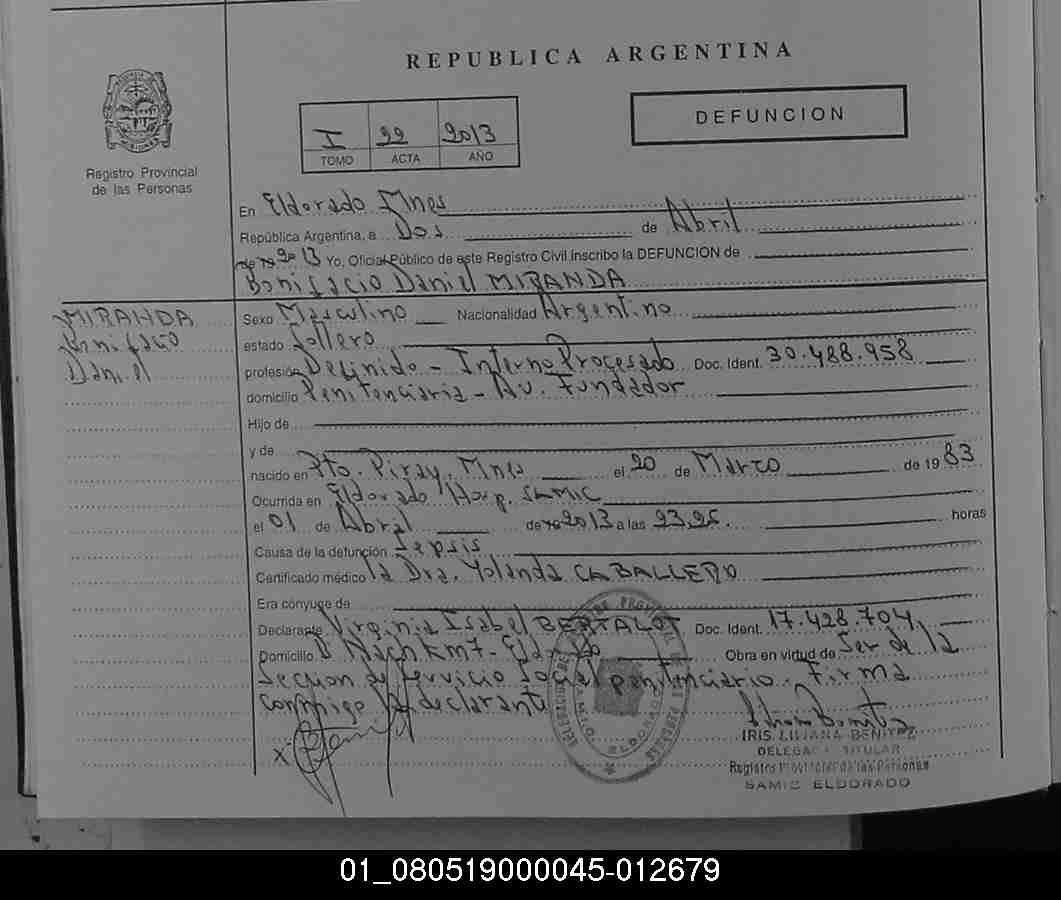 REPUBLICA ARGENTINA
DEFUNCION
I 22 2013
TOMO ACTA AÑO
Registro Provincial
de las Personas
En Eldorado Mnes
República Argentina, a Dos de Abril
de 2013 Yo, Oficial Público de este Registro Civil inscribo la DEFUNCION de
Bonifacio Daniel MIRANDA
MIRANDA
Bonifacio
Daniel
Sexo Masculino Nacionalidad Argentino
estado Soltero
profesión Definido - Interno Procesado Doc. Ident. 30.488.958
domicilio Penitenciaria - Av. Fundador
Hijo de
y de
nacido en Pto. Piray. Mnes el 20 de Marzo de 1983
Ocurrida en Eldorado Hosp. SAMIC
el 01 de Abral de 2013 a las 23,25 horas
Causa de la defunción Sepsis
Certificado médico la Dra. Yolanda CABALLERO
Era cónyuge de
Declarante Virginia Isabel Doc. Ident. 17.428.704
Domicilio Km7 - Obra en virtud de Ser de la
Seccion de Servicio Social penitenciario. Firma
conmigo la declarante
X
IRIS LILIANA BENITEZ
DELEGADA TITULAR
Registro Provincial de las Personas
SAMIC ELDORADO
01_080519000045-012679